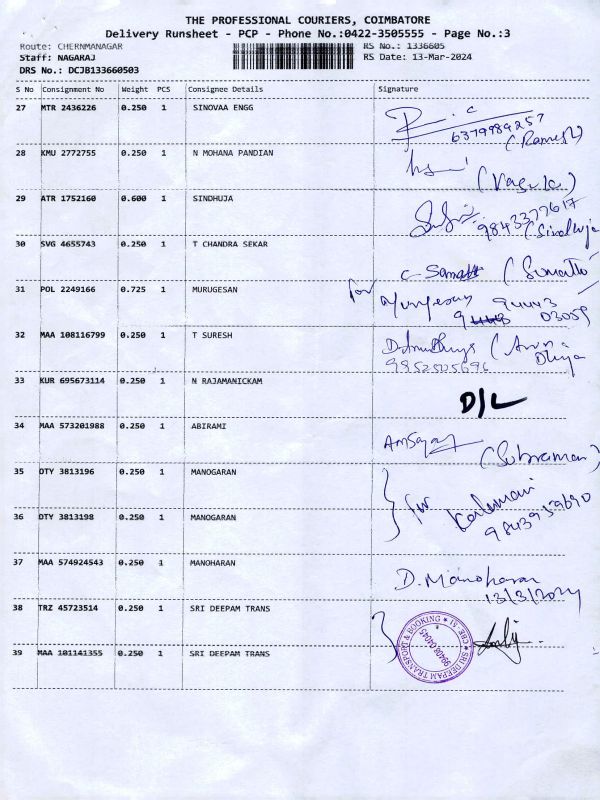 THE PROFESSIONAL COURIERS, COIMBATORE
Delivery Runsheet - PCP - Phone No.:0422-3505555 - Page No.:3
Route: CHERNMANAGAR RS No.: 1336605
Staff: NAGARAJ RS Date: 13-Mar-2024
DRS No.: DCJB133660503
S No Consignment No Weight PCS Consignee Details Signature
27 MTR 2436226 0.250 1 SINOVAA ENGG
6379989257
(Ramesh)
28 KMU 2772755 0.250 1 N MOHANA PANDIAN
29 ATR 1752160 0.600 1 SINDHUJA
9843377617
(Sindhuja
30 SVG 4655743 0.250 1 T CHANDRA SEKAR
31 POL 2249166 0.725 1 MURUGESAN
for Murugesan 94443
03059
32 MAA 108116799 0.250 1 T SURESH
9852505696
33 KUR 695673114 0.250 1 N RAJAMANICKAM
D/L
34 MAA 573201988 0.250 1 ABIRAMI
(Subraman)
35 DTY 3813196 0.250 1 MANOGARAN
for
36 DTY 3813198 0.250 1 MANOGARAN
9843959690
37 MAA 574924543 0.250 1 MANOHARAN
D. Manoharan
13/3/2024
38 TRZ 45723514 0.250 1 SRI DEEPAM TRANS
SRI DEEPAM TRANSPORT & BOOKING
39 MAA 101141355 0.250 1 SRI DEEPAM TRANS